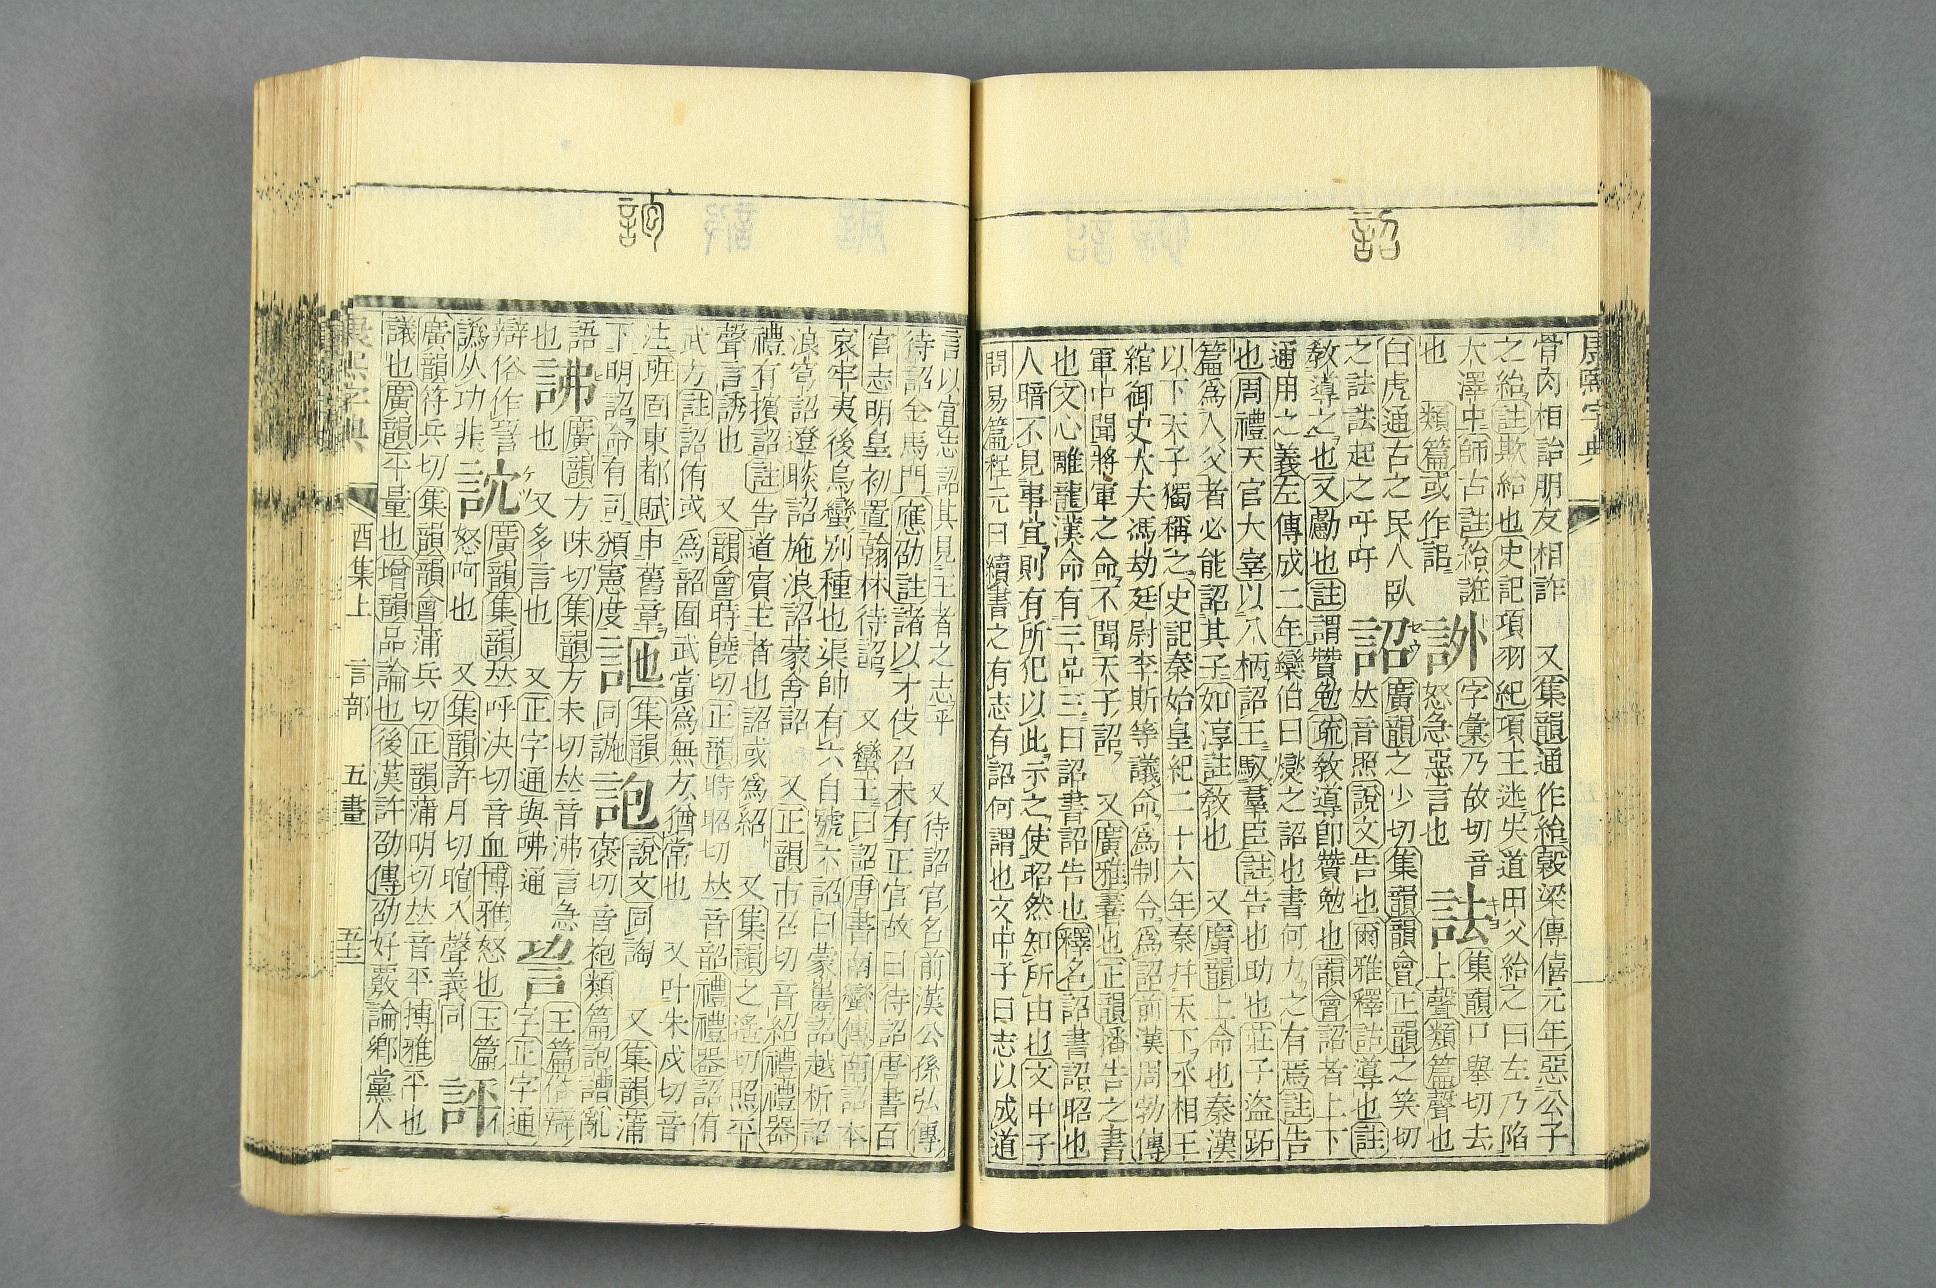 詔
康熙字典
骨肉相詒朋友相詐　又集韻通作紿穀梁傳僖元年惡公子
之紿註欺紿也史記項羽紀項王迷失道田父紿之曰左乃陷
大澤中師古註紿誑
也　類篇或作詒
訲字彙乃故切音
怒急惡言也
詓集韻口舉切去
上聲類篇聲也
白虎通古之民人臥
之詓詓起之吁吁
詔廣韻之少切集韻韻會正韻之笑切
𠀤音照說文告也爾雅釋詁導也註
教導之也又勴也註謂贊勉疏教導卽贊勉也韻會詔者上下
通用之義左傳成二年欒伯曰燮之詔也書何力之有焉註告
也周禮天官大宰以八柄詔王馭羣臣註告也助也莊子盜跖
篇爲人父者必能詔其子如淳註敎也　又廣韻上命也秦漢
以下天子獨稱之史記秦始皇紀二十六年秦幷天下丞相王
綰御史大夫馮劫廷尉李斯等議命爲制令爲詔前漢周勃傳
軍中聞將軍之命不聞天子詔　又廣雅書也正韻播告之書
也文心雕龍漢命有三品三曰詔書詔告也釋名詔書詔昭也
人暗不見事宜則有所犯以此示之使昭然知所由也文中子
問易篇程元曰續書之有志有詔何謂也文中子曰志以成道
詢
言以宣志詔其見王者之志乎　又待詔官名前漢公孫弘傳
待詔金馬門應劭註諸以才伎召未有正官故曰待詔唐書百
官志明皇初置翰林待詔　又蠻王曰詔唐書南蠻傳南詔本
哀牢夷後烏蠻別種也渠帥有六自號六詔曰蒙嶲詔越析詔
浪穹詔邆睒詔施浪詔蒙舍詔　又正韻市召切音紹禮禮器
禮有擯詔註告道賓主者也詔或爲紹　又集韻之遙切照平
聲言誘也　又韻會時饒切正韻時昭切𠀤音韶禮禮器詔侑
武方註詔侑或爲韶囿武當爲無方猶常也　又叶朱戍切音
注班固東都賦申舊章
下明詔命有司頒憲度
訑集韻
同訑
詑說文同詾　又集韻蒲
褒切音袍類篇詑讀亂
語
也
詀廣韻方味切集韻方未切𠀤音沸言急
也　又多言也　又正字通與咈通
䛊字正字通
辯俗作䛊
譌从功非
訣廣韻集韻𠀤呼決切音血博雅怒也玉篇
怒呵也　又集韻許月切䎀入聲義同
評
廣韻符兵切集韻韻會蒲兵切正韻蒲明切𠀤音平博雅平也
議也廣韻平量也增韻品論也後漢許劭傳劭好覈論鄉黨人
康熙字典　酉集上　言部　五畫